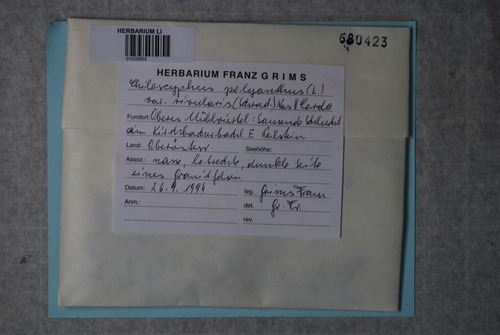 HERBARIUM LI
680423
HERBARIUM FRANZ GRIMS
Chiloscyphus polyanthus (L.)
var. rivularis (Schrad.) Nees
Fundort: Oberes Mühlviertel: Sausende Schlucht
am
Land: Oberösterr Seehöhe:
Assoz: nasse, dunkle Seite
eines Granitfelsen
Datum: 26.9.1994 leg. Grims Franz
Anm.: det. Gr. Fr.
rev.